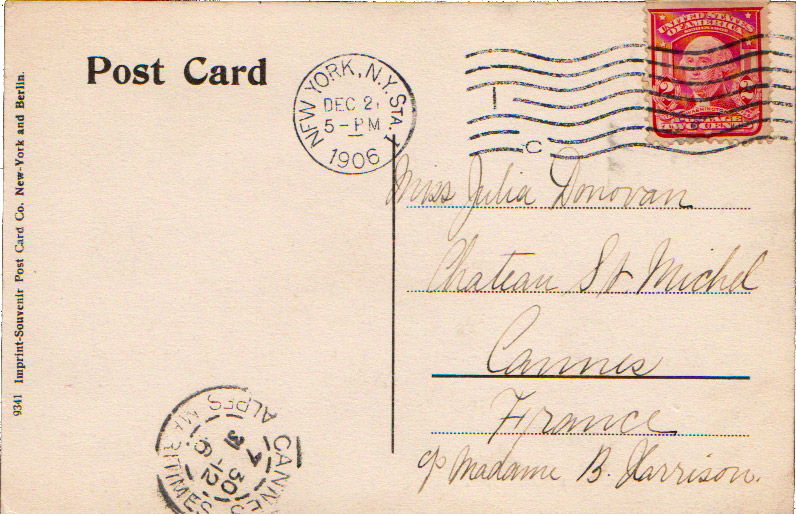 Post Card
9341 Imprint-Souvenir Post Card Co. New-York and Berlin.
NEW YORK, N.Y. STA.
DEC 2
5-PM
1906
C
UNITED STATES
OF AMERICA
2 2
POSTAGE
TWO CENTS
Miss Julia Donovan
Chateau St Michel
Cannes
France
c/o Madame B. Harrison.
CANNES
ALPES MARITIMES